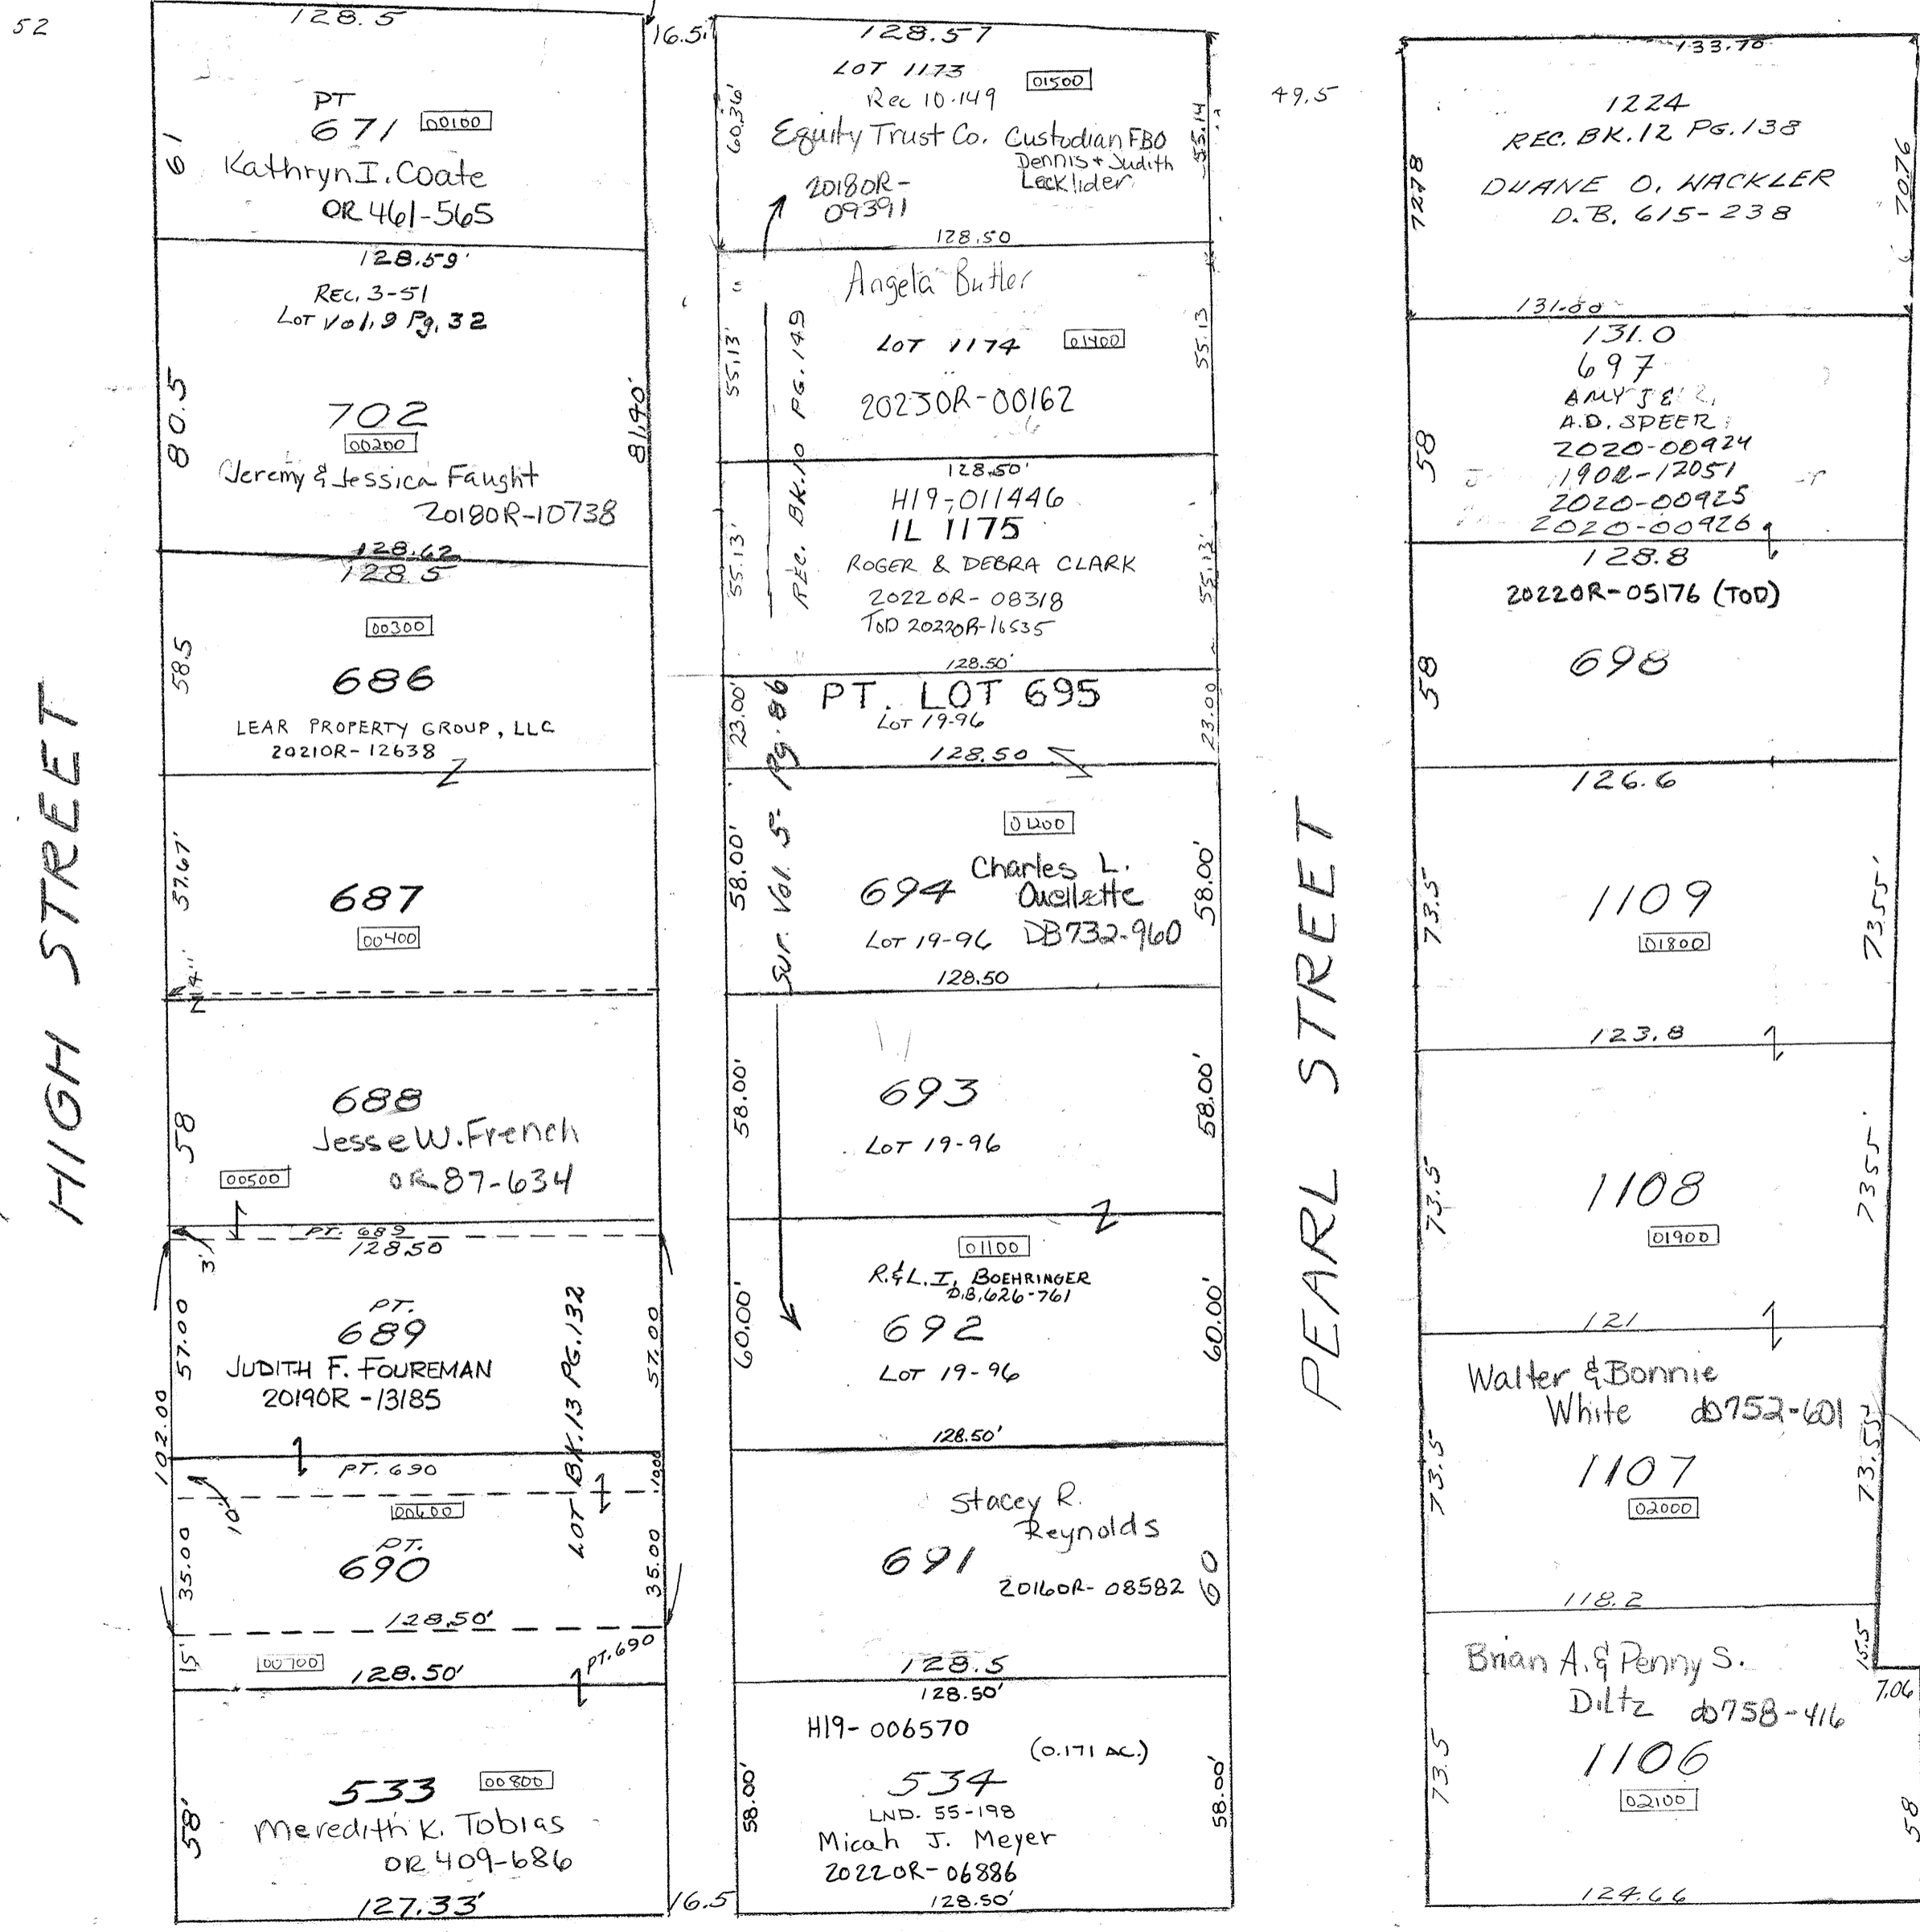 52
HIGH STREET
128.5
PT
671 00100
61
Kathryn I. Coate
OR 461-565
128.59'
REC. 3-51
LOT Vol. 9 Pg. 32
80.5
81.40'
702
00200
Jeremy & Jessica Faught
2018OR-10738
128.62
128.5
00300
58.5
686
LEAR PROPERTY GROUP, LLC
2021OR-12638
57.67'
687
00400
4"
688
58
Jesse W. French
OR 87-634
00500
PT. 689
128.50
3'
57.00
57.00
PT.
689
JUDITH F. FOUREMAN
2019OR-13185
LOT BK.13 PG.132
102.00
PT. 690
10.00
10'
00600
PT.
690
35.00
35.00
128.50'
15'
00700
128.50'
PT. 690
533 00800
58'
Meredith K. Tobias
OR 409-686
127.33'
16.5'
16.5
128.57
LOT 1173 01500
Rec 10-149
60.36'
55.14
Equity Trust Co. Custodian FBO
Dennis + Judith
Lecklider
2018OR-
09391
128.50
Angela Butler
55.13'
55.13
LOT 1174 01400
2023OR-00162
REC. BK.10 PG.149
128.50'
H19-011446
IL 1175
55.13'
55.13'
ROGER & DEBRA CLARK
2022OR-08318
TOD 2022OR-16535
128.50'
PT. LOT 695
23.00'
23.00
LOT 19-96
128.50
Sur. Vol. 5- Pg. 86
01200
58.00'
58.00'
694
Charles L.
Ouellette
LOT 19-96 DB732-960
128.50
58.00'
58.00'
693
LOT 19-96
01100
R.&L.I. BOEHRINGER
D.B.626-761
60.00'
60.00'
692
LOT 19-96
128.50'
Stacey R.
Reynolds
691
60
2016OR-08582
128.5
128.50'
H19-006570
(0.171 AC.)
58.00'
58.00'
534
LND. 55-198
Micah J. Meyer
2022OR-06886
128.50'
PEARL STREET
49.5
133.70
1224
REC. BK.12 PG.138
72.78
70.76
DUANE O. WACKLER
D.B. 615-238
131.00
131.0
697
58
A.D. SPEER
2020-00924
19OR-12051
2020-00925
2020-00926
128.8
2022OR-05176 (TOD)
58
698
126.6
73.5
73.55'
1109
01800
123.8
73.5
73.55'
1108
01900
121
Walter & Bonnie
White db752-601
73.5
73.55'
1107
02000
118.2
15.5
7.06
Brian A. & Penny S.
Diltz db758-416
73.5
1106
02100
58
124.66